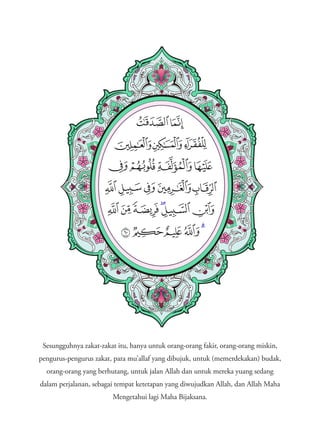 إِنَّمَا ٱلصَّدَقَٰتُ
لِلْفُقَرَآءِ وَٱلْمَسَٰكِينِ وَٱلْعَٰمِلِينَ
عَلَيْهَا وَٱلْمُؤَلَّفَةِ قُلُوبُهُمْ وَفِى
ٱلرِّقَابِ وَٱلْغَٰرِمِينَ وَفِى سَبِيلِ ٱللَّهِ
وَٱبْنِ ٱلسَّبِيلِ ۖ فَرِيضَةً مِّنَ ٱللَّهِ
ۗ وَٱللَّهُ عَلِيمٌ حَكِيمٌ ٦٠
Sesungguhnya zakat-zakat itu, hanya untuk orang-orang fakir, orang-orang miskin,
pengurus-pengurus zakat, para mu'allaf yang dibujuk, untuk (memerdekakan) budak,
orang-orang yang berhutang, untuk jalan Allah dan untuk mereka yuang sedang
dalam perjalanan, sebagai tempat ketetapan yang diwujudkan Allah, dan Allah Maha
Mengetahui lagi Maha Bijaksana.